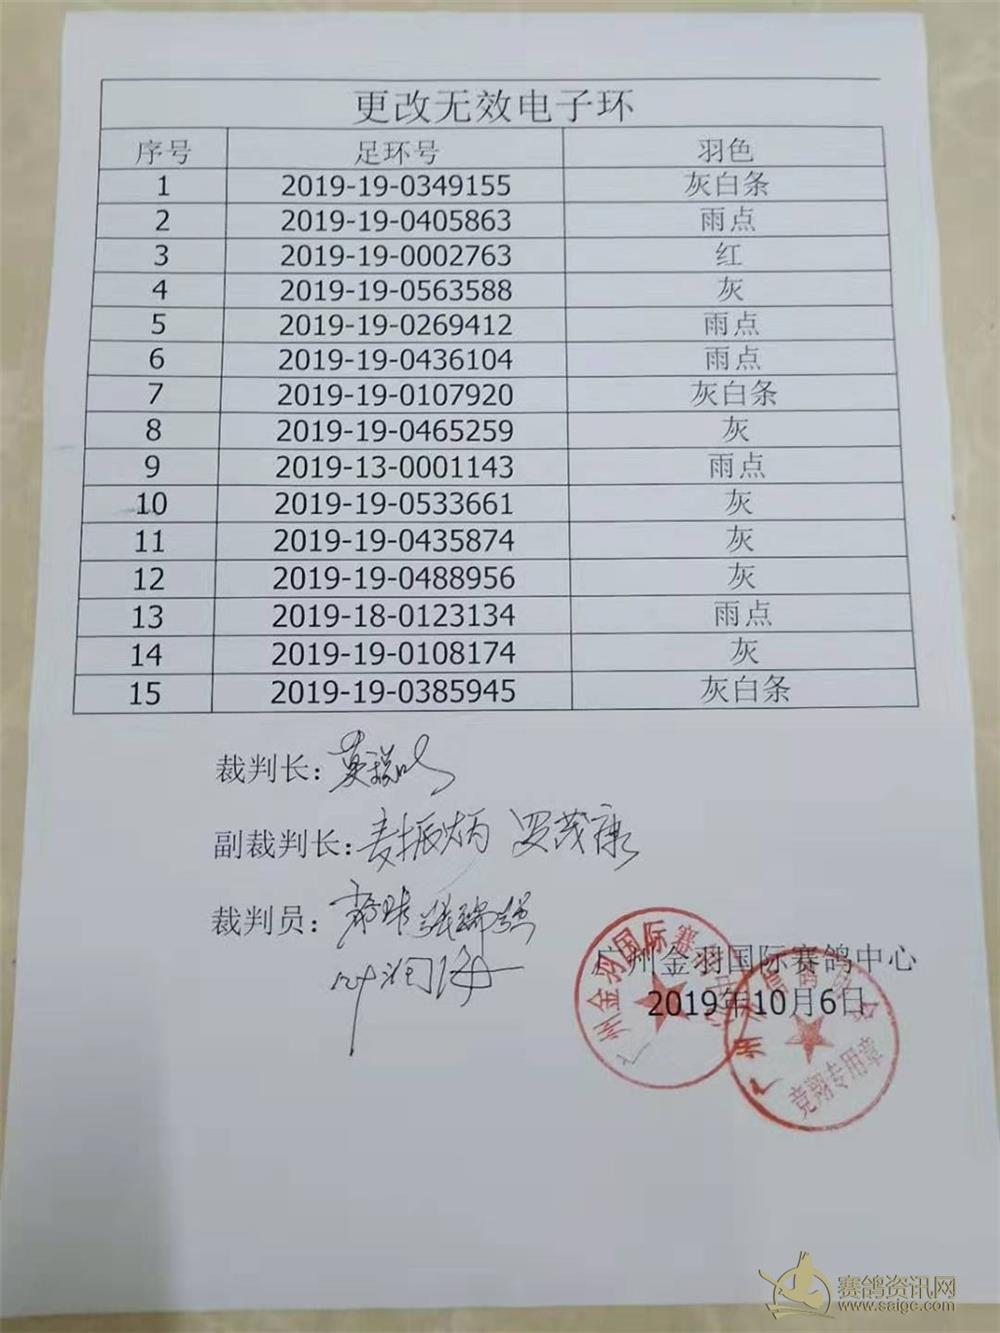 更改无效电子环
序号 足环号 羽色
1 2019-19-0349155 灰白条
2 2019-19-0405863 雨点
3 2019-19-0002763 红
4 2019-19-0563588 灰
5 2019-19-0269412 雨点
6 2019-19-0436104 雨点
7 2019-19-0107920 灰白条
8 2019-19-0465259 灰
9 2019-13-0001143 雨点
10 2019-19-0533661 灰
11 2019-19-0435874 灰
12 2019-19-0488956 灰
13 2019-18-0123134 雨点
14 2019-19-0108174 灰
15 2019-19-0385945 灰白条
裁判长：
副裁判长：麦振炳 罗茂康
裁判员：张瑞强
广州金羽国际赛鸽中心
2019年10月6日
竞翔专用章
赛鸽资讯网
www.saigc.com